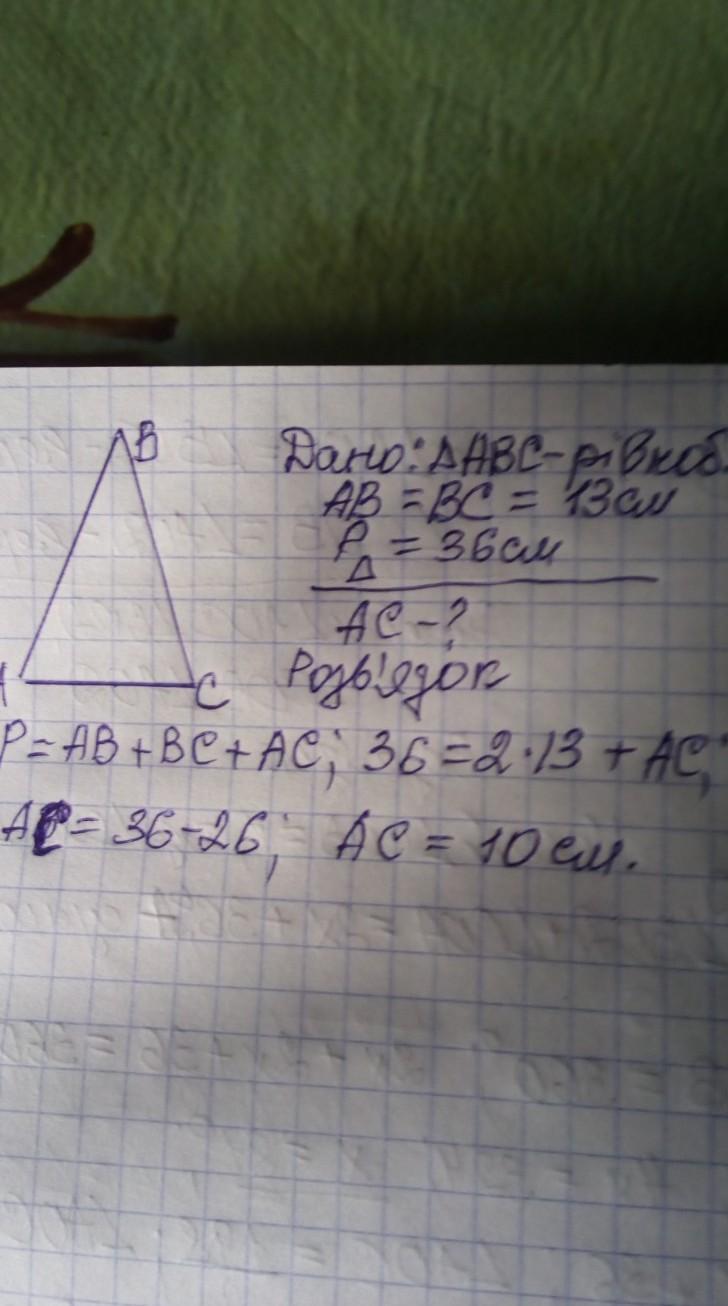 B
Дано: ΔABC-рівноб.
AB = BC = 13см
P Δ = 36см
AC-?
A C Розв'язок
P=AB+BC+AC; 36=2·13+AC;
AC= 36-26; AC = 10см.